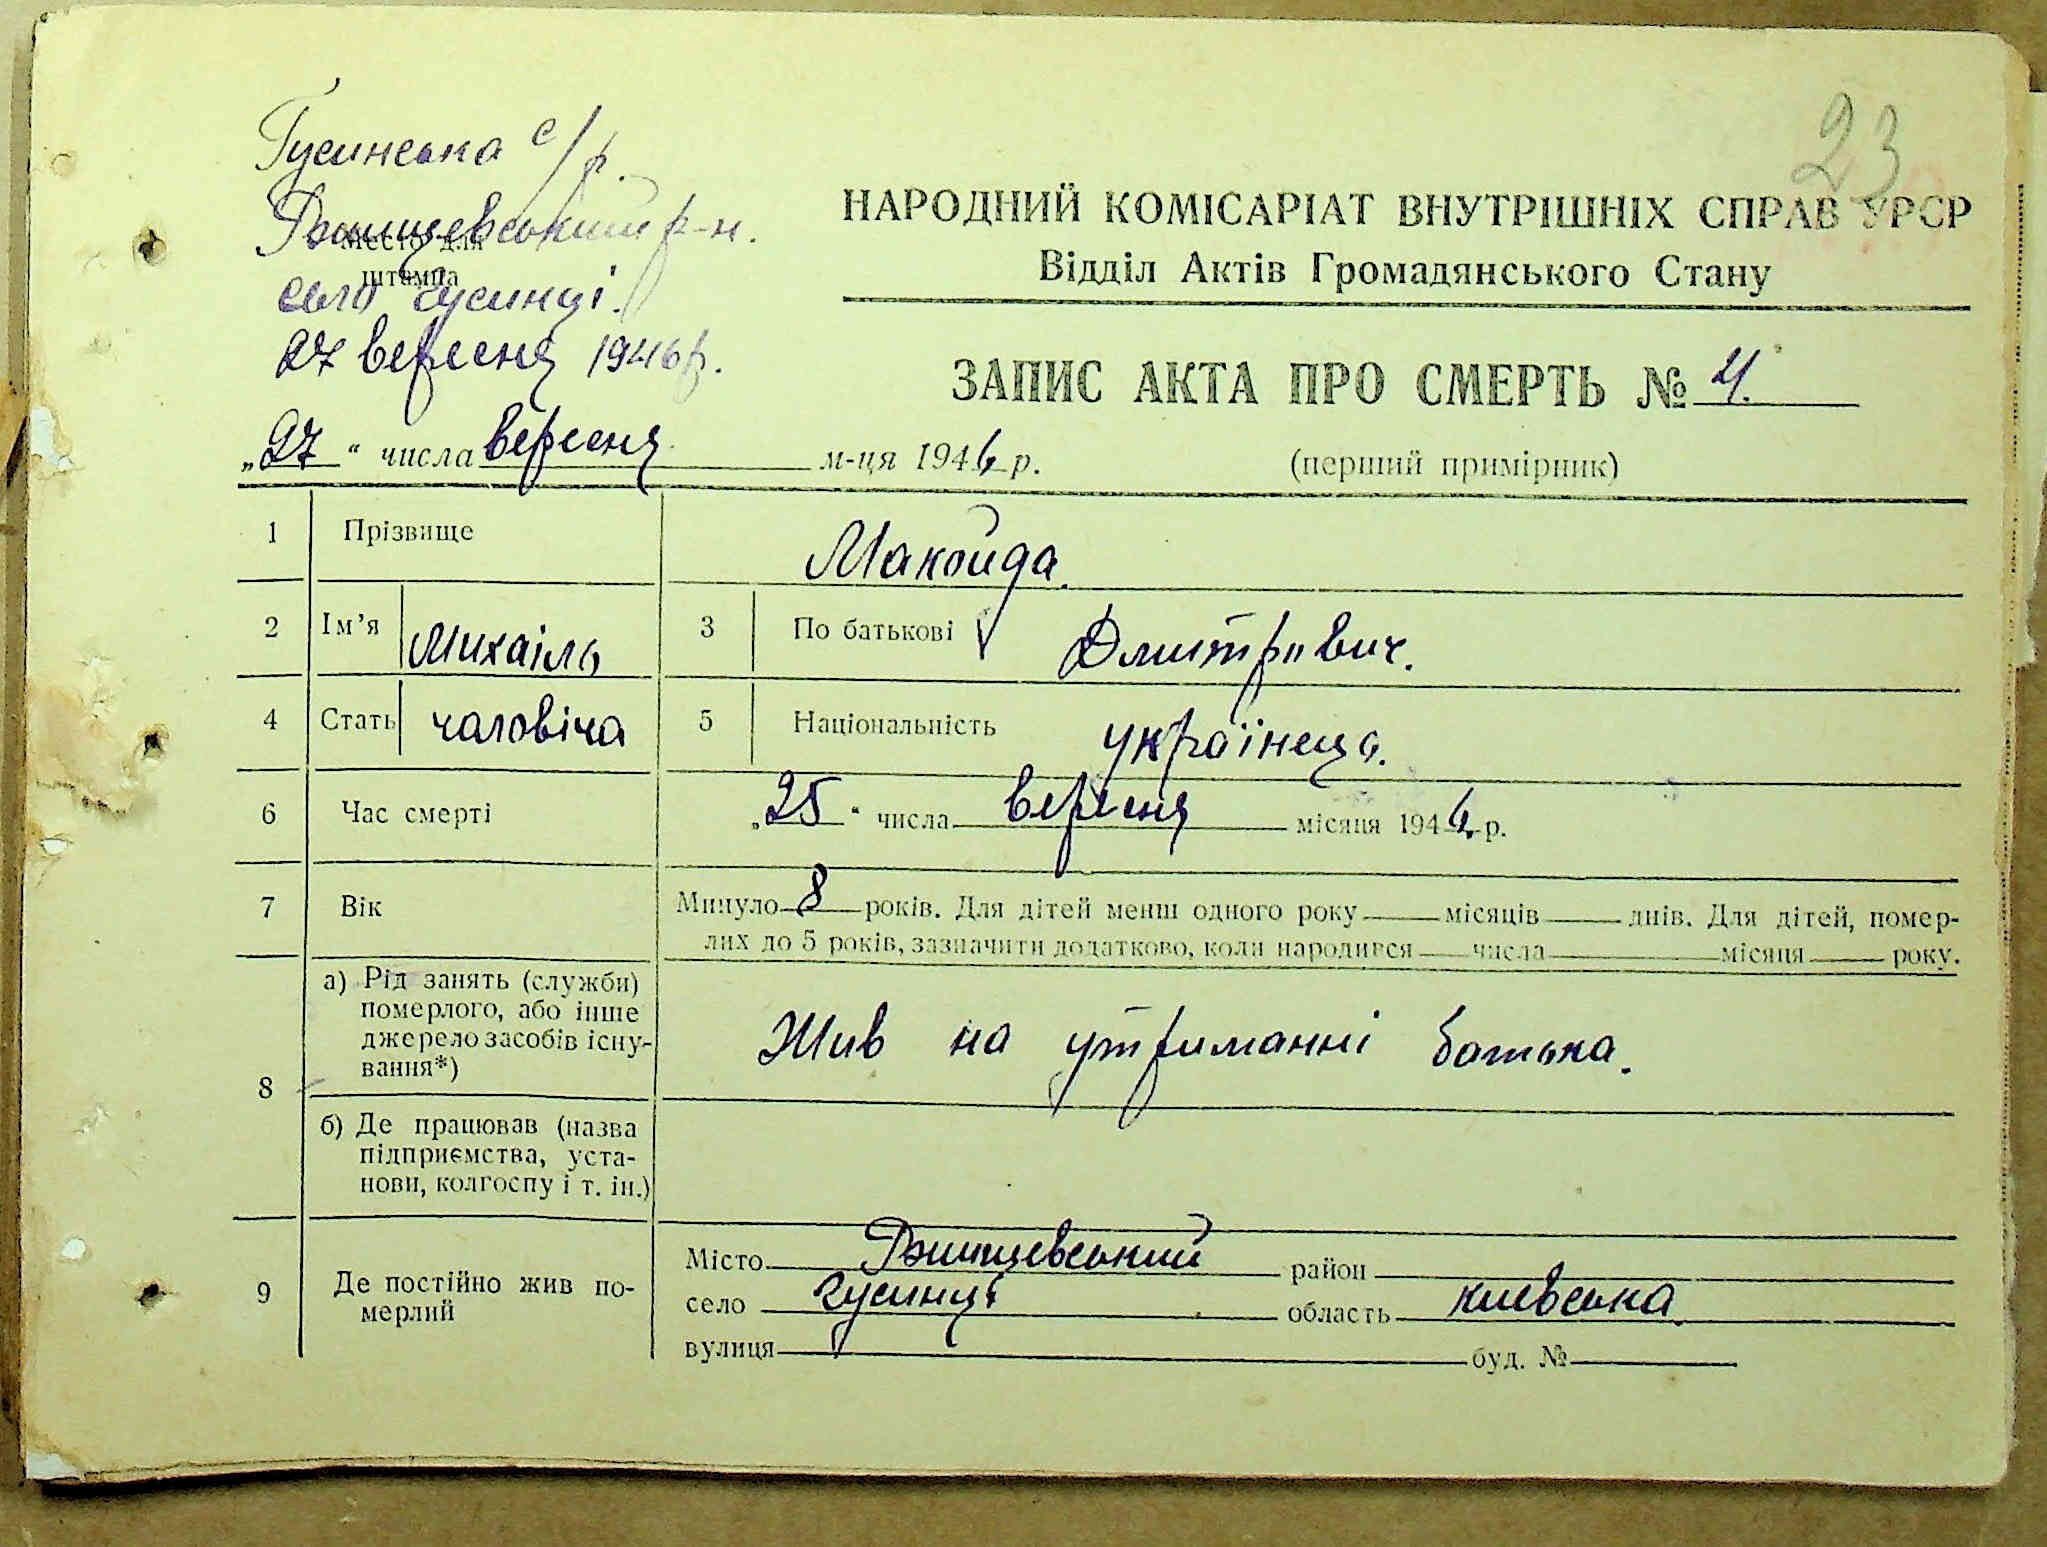 23
Гусинська с/р.
Ржищевський р-н.
Место для
штампа
село Гусинці.
27 вересня 1946 р.
НАРОДНИЙ КОМІСАРІАТ ВНУТРІШНІХ СПРАВ УРСР
Відділ Актів Громадянського Стану
ЗАПИС АКТА ПРО СМЕРТЬ № 4.
„27“ числа вересня м-ця 1946 р.
(перший примірник)
1 Прізвище Макойда.
2 Ім’я Михаіль 3 По батькові Дмитрович.
4 Стать чаловіча 5 Національність українець.
6 Час смерті „25“ числа вересня місяця 1946 р.
7 Вік Минуло 8 років. Для дітей менш одного року місяців днів. Для дітей, помер-
лих до 5 років, зазначити додатково, коли народився числа місяця року.
8 а) Рід занять (служби)
померлого, або інше
джерело засобів існу-
вання*)
Жив на утриманні батька.
б) Де працював (назва
підприємства, уста-
нови, колгоспу і т. ін.)
9 Де постійно жив по-
мерлий
Місто Ржищевський район
село Гусинці область київська.
вулиця буд. №